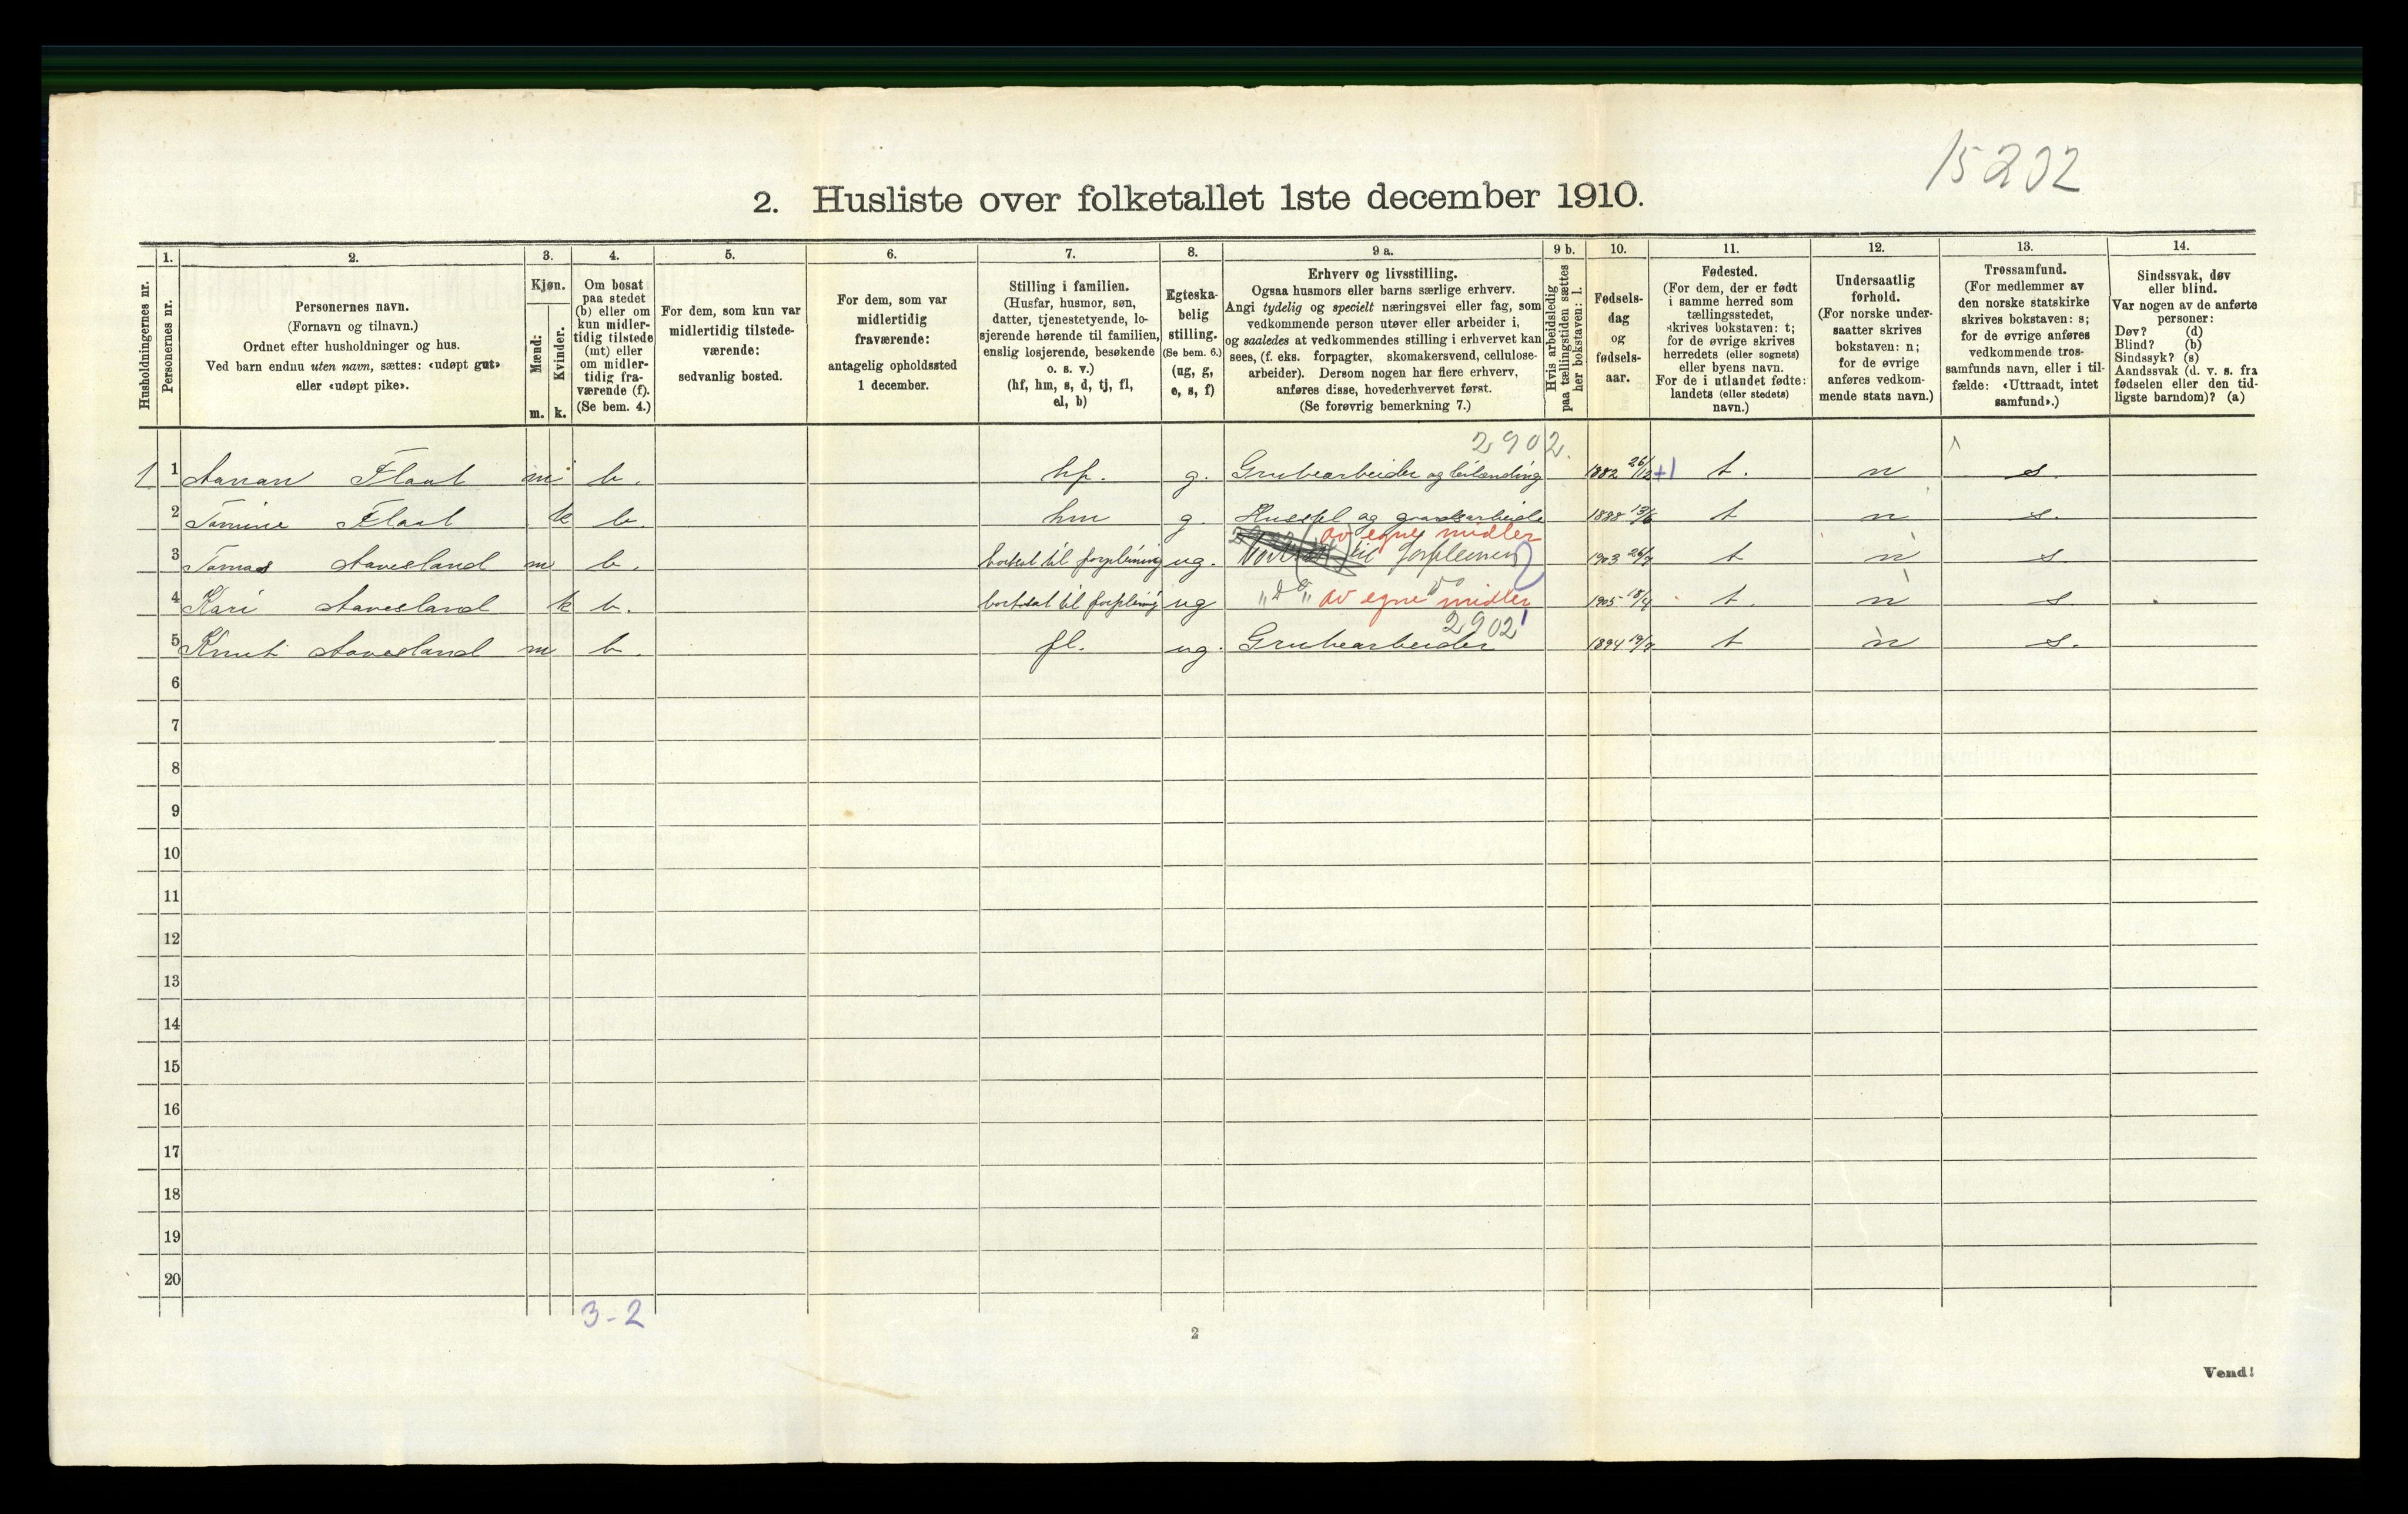 15202
2. Husliste over folketallet 1ste december 1910.
Husholdningernes nr.
1.
Personernes nr.
2.
Personernes navn.
(Fornavn og tilnavn.)
Ordnet efter husholdninger og hus.
Ved barn endnu uten navn, sættes: «udøpt gut»
eller «udøpt pike».
3.
Kjøn.
Mænd:
Kvinder.
m. k.
4.
Om bosat
paa stedet
(b) eller om
kun midler-
tidig tilstede
(mt) eller
om midler-
tidig fra-
værende (f).
(Se bem. 4.)
5.
For dem, som kun var
midlertidig tilstede-
værende:
sedvanlig bosted.
6.
For dem, som var
midlertidig
fraværende:
antagelig opholdssted
1 december.
7.
Stilling i familien.
(Husfar, husmor, søn,
datter, tjenestetyende, lo-
sjerende hørende til familien,
enslig losjerende, besøkende
o. s. v.)
(hf, hm, s, d, tj, fl,
el, b)
8.
Egteska-
belig
stilling.
(Se bem. 6.)
(ug, g,
e, s, f)
9 a.
Erhverv og livsstilling.
Ogsaa husmors eller barns særlige erhverv.
Angi tydelig og specielt næringsvei eller fag, som
vedkommende person utøver eller arbeider i,
og saaledes at vedkommendes stilling i erhvervet kan
sees, (f. eks. forpagter, skomakersvend, cellulose-
arbeider). Dersom nogen har flere erhverv,
anføres disse, hovederhvervet først.
(Se forøvrig bemerkning 7.)
9 b.
Hvis arbeidsledig
paa tællingstiden sættes
her bokstaven: l.
10.
Fødsels-
dag
og
fødsels-
aar.
11.
Fødested.
(For dem, der er født
i samme herred som
tællingsstedet,
skrives bokstaven: t;
for de øvrige skrives
herredets (eller sognets)
eller byens navn.
For de i utlandet fødte:
landets (eller stedets)
navn.)
12.
Undersaatlig
forhold.
(For norske under-
saatter skrives
bokstaven: n;
for de øvrige
anføres vedkom-
mende stats navn.)
13.
Trossamfund.
(For medlemmer av
den norske statskirke
skrives bokstaven: s;
for de øvrige anføres
vedkommende tros-
samfunds navn, eller i til-
fælde: «Uttraadt, intet
samfund».)
14.
Sindssvak, døv
eller blind.
Var nogen av de anførte
personer:
Døv? (d)
Blind? (b)
Sindssyk? (s)
Aandssvak (d. v. s. fra
fødselen eller den tid-
ligste barndom)? (a)
2902.
1 1 Aanan Flaat m b. hf. g. Grubearbeider og leilænding 1882 26/12 +1 t. n s.
2 Tomine Flaat k b. hm g. Husstel og 1888 13/6 t n s.
av egne midler
3 Tomas Aavesland m b. bortsat til forpleining ug. til forpleining 1903 26/7 t n s.
4 Kari Aavesland k b. bortsat til forpleining ug "do" av egne midler do 1905 18/4 t. n s
2902
5 Knut Aavesland m b. fl. ug. Grubearbeider 1894 19/7 t n s.
6
7
8
9
10
11
12
13
14
15
16
17
18
19
20
3-2
2
Vend!